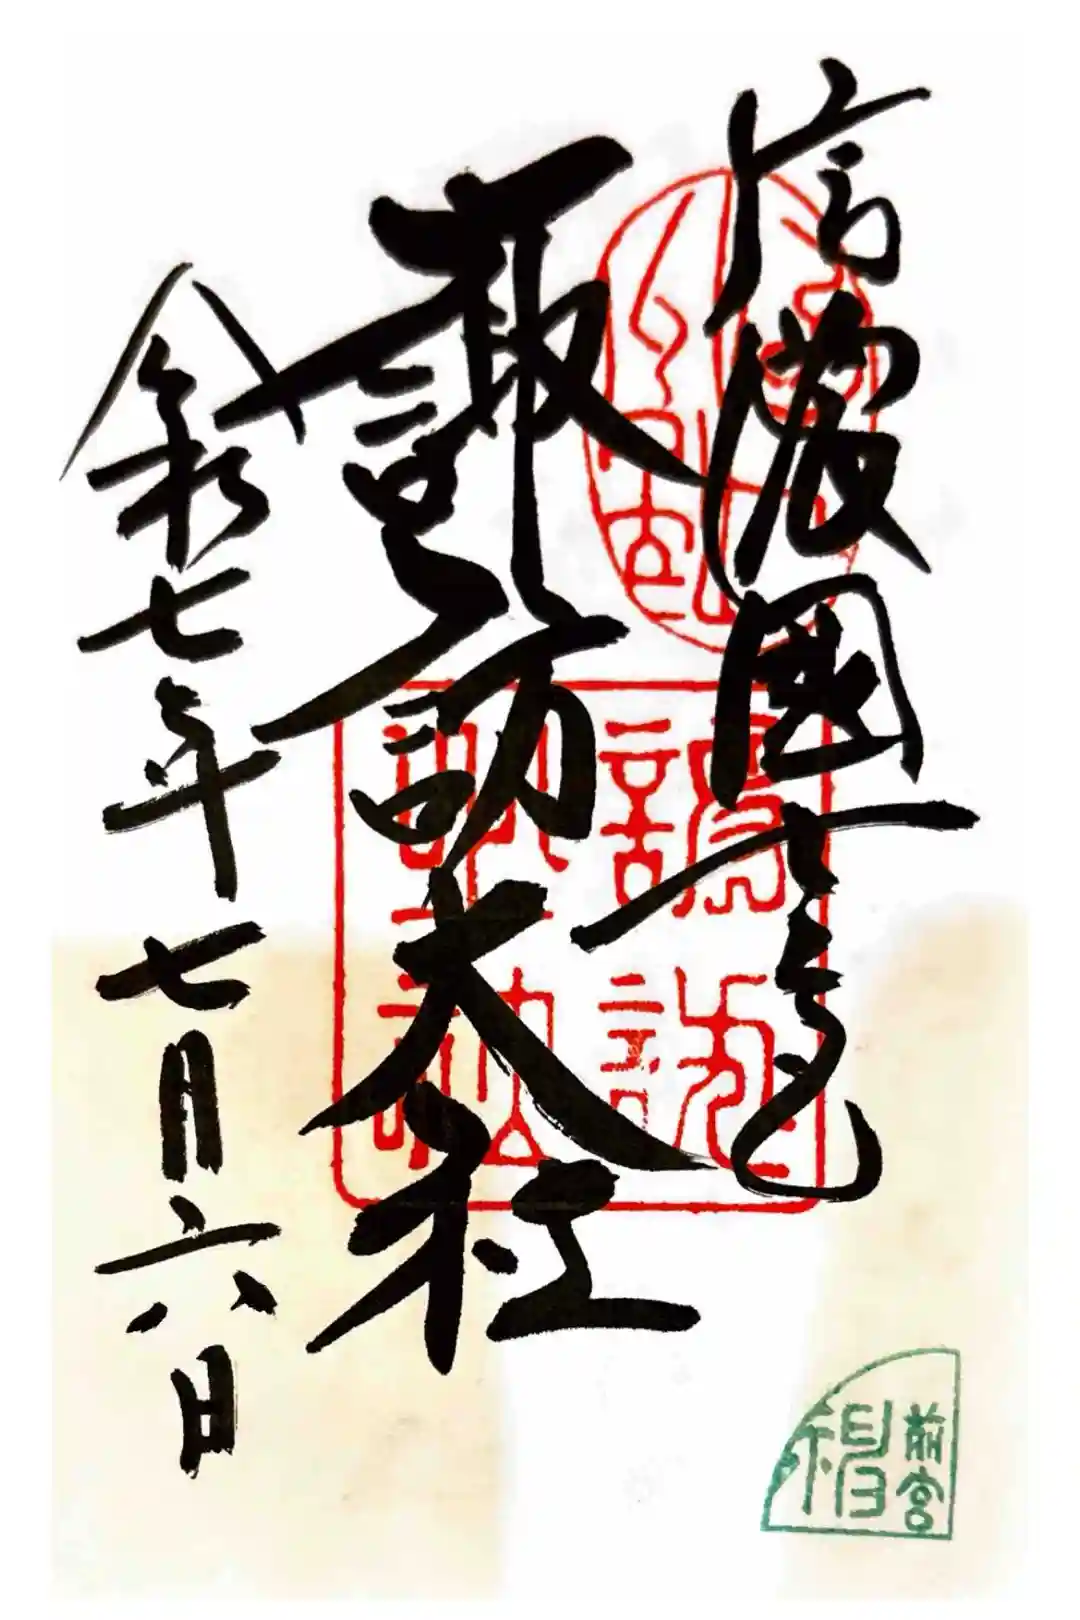 信濃國一之宮
諏訪大社
令和七年七月六日
諏訪
神社
前宮